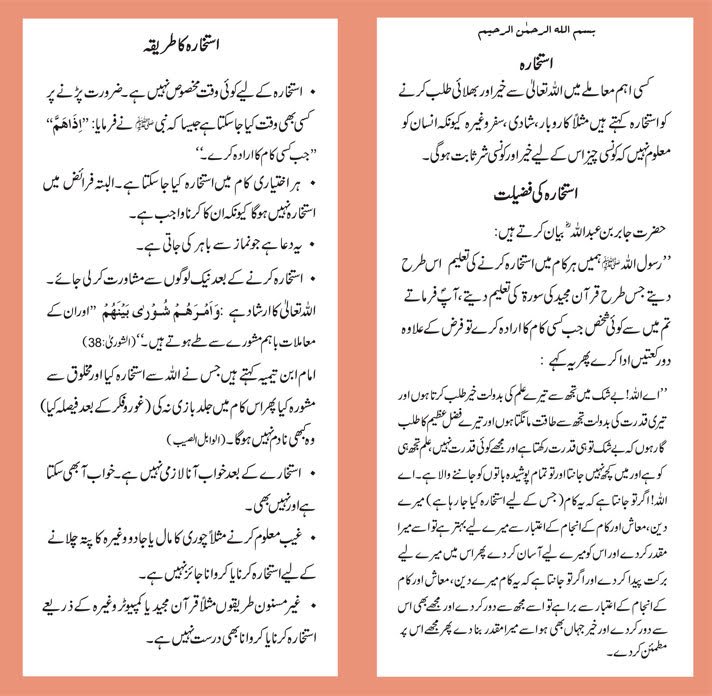 بسم الله الرحمٰن الرحيم
استخارہ
کسی اہم معاملے میں اللہ تعالیٰ سے خیر اور بھلائی طلب کرنے
کو استخارہ کہتے ہیں مثلاً کاروبار، شادی، سفر وغیرہ کیونکہ انسان کو
معلوم نہیں کہ کونسی چیز اس کے لیے خیر اور کونسی شر ثابت ہوگی۔
استخارہ کی فضیلت
حضرت جابر بن عبداللہؓ بیان کرتے ہیں:
’’رسول اللہ ﷺ ہمیں ہر کام میں استخارہ کرنے کی تعلیم اس طرح
دیتے جس طرح قرآن مجید کی سورۃ کی تعلیم دیتے، آپؐ فرماتے
تم میں سے کوئی شخص جب کسی کام کا ارادہ کرے تو فرض کے علاوہ
دو رکعتیں ادا کرے پھر یہ کہے :
’’اے اللہ! بے شک میں تجھ سے تیرے علم کی بدولت خیر طلب کرتا ہوں اور
تیری قدرت کی بدولت تجھ سے طاقت مانگتا ہوں اور تیرے فضل عظیم کا طلب
گار ہوں کہ بے شک تو ہی قدرت رکھتا ہے اور مجھے کوئی قدرت نہیں، علم تجھ ہی
کو ہے اور میں کچھ نہیں جانتا اور تو تمام پوشیدہ باتوں کو جاننے والا ہے۔ اے
اللہ! اگر تو جانتا ہے کہ یہ کام (جس کے لیے استخارہ کیا جا رہا ہے) میرے
دین، معاش اور کام کے انجام کے اعتبار سے میرے لیے بہتر ہے تو اسے میرا
مقدر کر دے اور اس کو میرے لیے آسان کر دے پھر اس میں میرے لیے
برکت پیدا کر دے اور اگر تو جانتا ہے کہ یہ کام میرے دین، معاش اور کام
کے انجام کے اعتبار سے برا ہے تو اسے مجھ سے دور کر دے اور مجھے بھی اس
سے دور کر دے اور خیر جہاں بھی ہو اسے میرا مقدر بنا دے پھر مجھے اس پر
مطمئن کر دے۔
استخارہ کا طریقہ
• استخارہ کے لیے کوئی وقت مخصوص نہیں ہے۔ ضرورت پڑنے پر
کسی بھی وقت کیا جا سکتا ہے جیسا کہ نبی ﷺ نے فرمایا: ’’اِذَا هَمَّ‘‘
’’جب کسی کام کا ارادہ کرے۔‘‘
• ہر اختیاری کام میں استخارہ کیا جا سکتا ہے۔ البتہ فرائض میں
استخارہ نہیں ہوگا کیونکہ ان کا کرنا واجب ہے۔
• یہ دعا ہے جو نماز سے باہر کی جاتی ہے۔
• استخارہ کرنے کے بعد نیک لوگوں سے مشاورت کر لی جائے۔
اللہ تعالیٰ کا ارشاد ہے :وَاَمْرُهُمْ شُوْرٰی بَیْنَهُمْ ’’اور ان کے
معاملات باہم مشورے سے طے ہوتے ہیں۔‘‘ (الشوریٰ:38)
امام ابن تیمیہ کہتے ہیں جس نے اللہ سے استخارہ کیا اور مخلوق سے
مشورہ کیا پھر اس کام میں جلد بازی نہ کی (غور و فکر کے بعد فیصلہ کیا)
وہ کبھی نادم نہیں ہوگا۔ (الوابل الصیب)
• استخارے کے بعد خواب آنا لازمی نہیں ہے۔ خواب آ بھی سکتا
ہے اور نہیں بھی۔
• غیب معلوم کرنے مثلاً چوری کا مال یا جادو وغیرہ کا پتہ چلانے
کے لیے استخارہ کرنا یا کروانا جائز نہیں ہے۔
• غیر مسنون طریقوں مثلاً قرآن مجید یا کمپیوٹر وغیرہ کے ذریعے
استخارہ کرنا یا کروانا بھی درست نہیں ہے۔